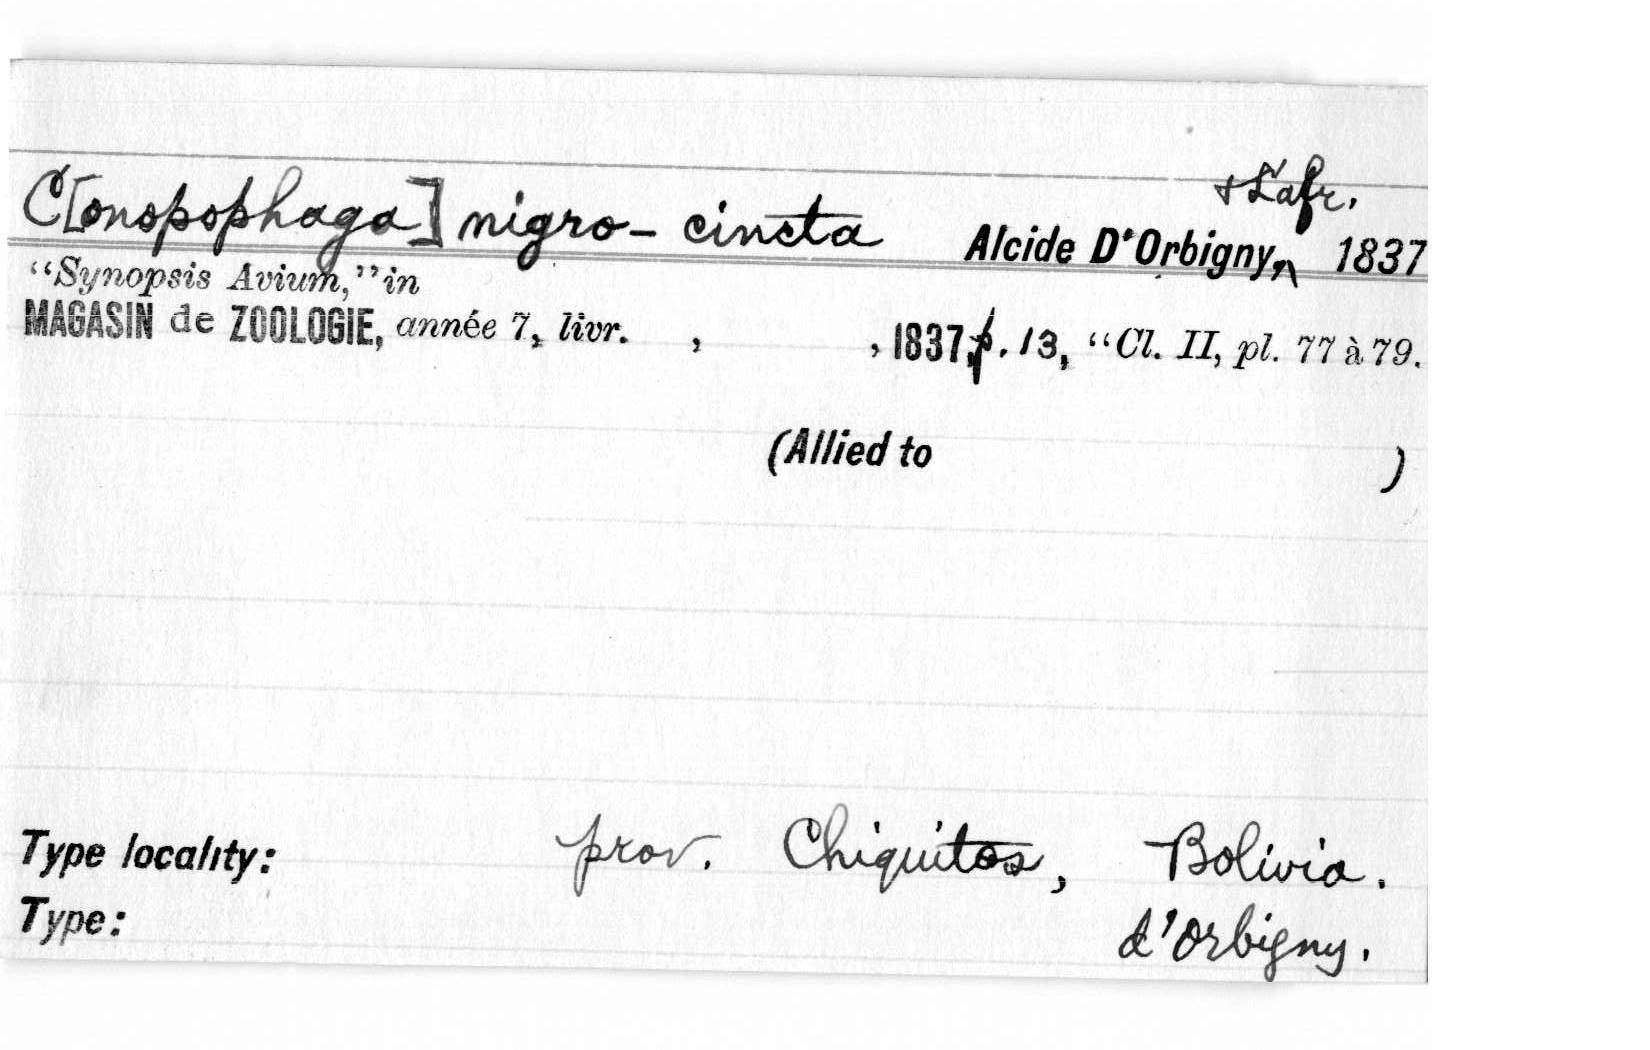 & Lafr.
C[onopophaga] nigro-cincta Alcide D'Orbigny, 1837
“Synopsis Avium,” in
MAGASIN de ZOOLOGIE, année 7, livr. , , 1837, p. 13, “Cl. II, pl. 77 à 79.
(Allied to )
Type locality: prov. Chiquitos, Bolivia.
Type: d'Orbigny.